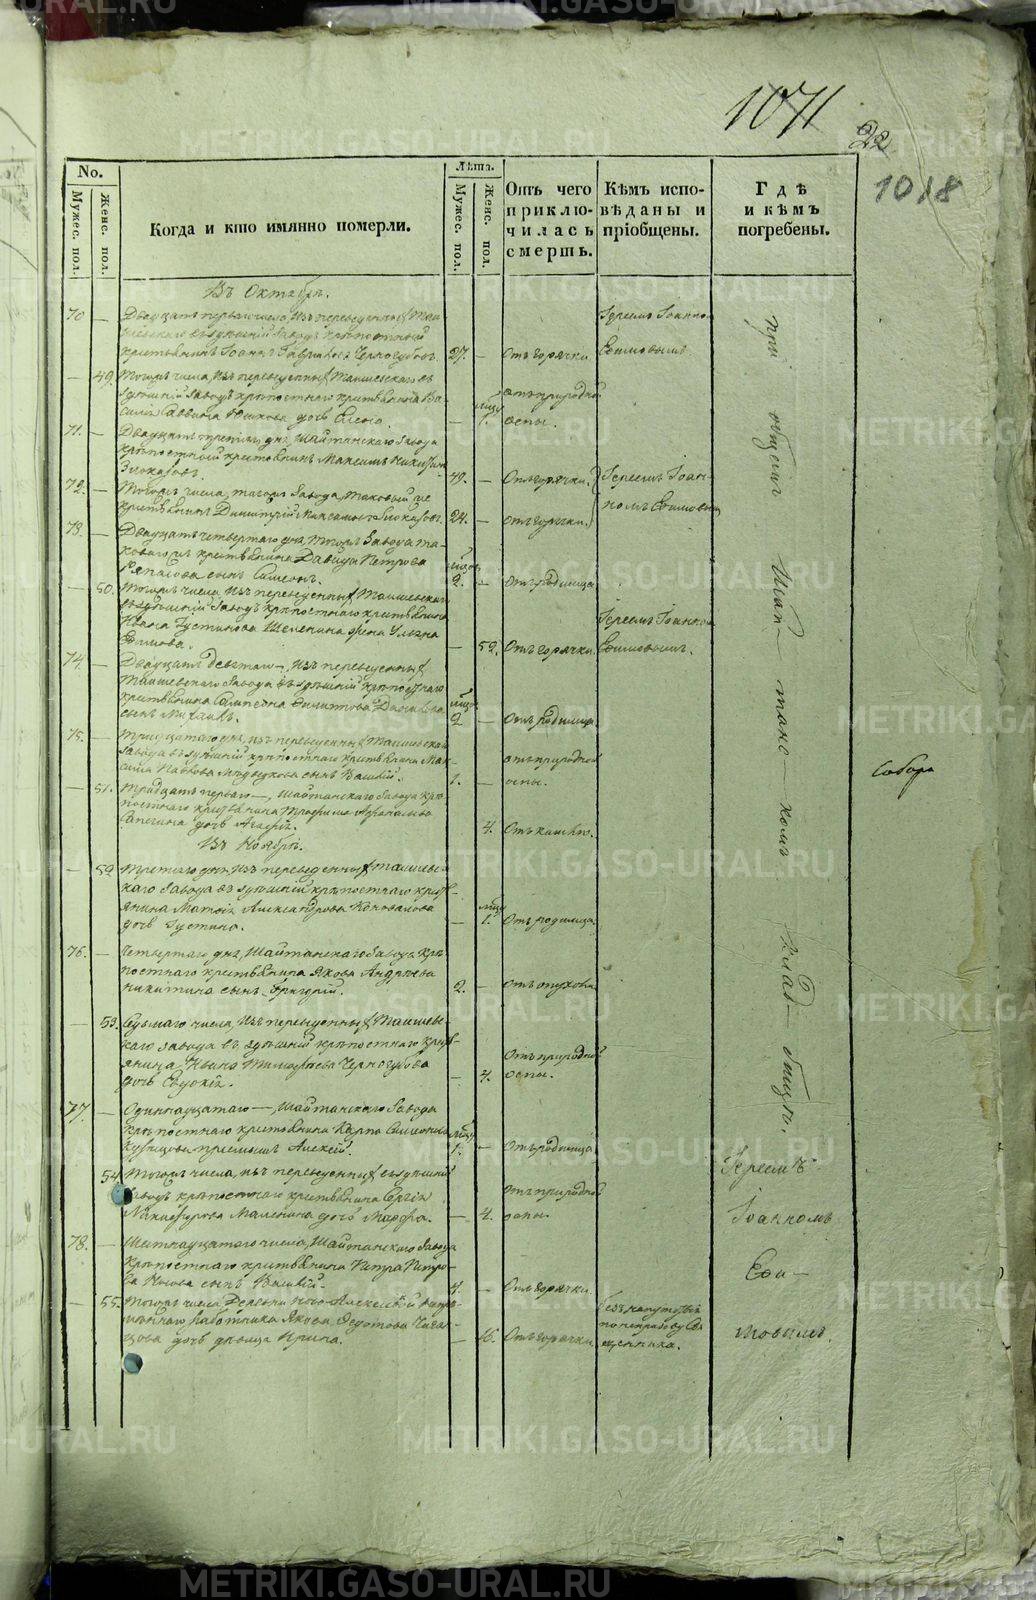 1071
22
1018
No.
Мужес. пол.
Женс. пол.
Когда и кто имянно померли.
Лѣта.
Мужес. пол.
Женс. пол.
Отъ чего приклю-чилась смерть.
Кѣмъ испо-вѣданы и пріобщены.
Гдѣ и кѣмъ погребены.
Въ Октябрѣ.
70 — Двадцать перваго числа, изъ переведенныхъ
въ здѣшній заводъ крѣпостный
крестьянинъ Іоаннъ Гавриловъ Черногубовъ. 27. — Отъ горячки. Іереемъ Іоанномъ
Ефимовымъ.
— 49. Тогожъ числа, изъ переведенныхъ въ
здѣшній заводъ крѣпостнаго крестьянина Ва-
силія Саввина дочь Елена. — 1. отъ природной
оспы.
71. — Двадцать третьяго дня, Шайтанскаго завода
крѣпостной крестьянинъ Максимъ Никитинъ
49. — Отъ горячки. Іереемъ Іоан-
72. — Тогожъ числа, тогожъ завода, таковый же
крестьянинъ Димитрій Максимовъ 24. — отъ горячки. номъ Ефимовымъ
73. — Двадцать четвертаго дня, тогожъ завода та-
коваго же крестьянина Давида Петрова
сынъ Симеонъ. 2. — Отъ родимца.
— 50. Тогожъ числа, изъ переведенныхъ
въ здѣшній заводъ крѣпостнаго крестьянина
Ивана Іустинова Шеленина жена Ульяна
Ефимова. — 52. Отъ горячки. Іереемъ Іоанномъ
Ефимовымъ.
74. — Двадцать девятаго —, изъ переведенныхъ
завода въ здѣшній крѣпостнаго
крестьянина
сынъ Михаилъ. 2 — Отъ родимца
75. — Тридцатаго дня, изъ переведенныхъ
завода въ здѣшній крѣпостнаго крестьянина
Павлова Медведкова сынъ Василій. 1. — отъ природной
оспы.
— 51. Тридцать перваго —, Шайтанскаго завода крѣ-
постнаго крестьянина Трофима Афанасьева
Сапегина дочь Агафія. 4. Отъ кашлю.
Въ Ноябрѣ.
— 52 Третьяго дня, изъ переведенныхъ
каго завода въ здѣшній крѣпостнаго кресть-
янина Матвія Александрова Коновалова
дочь Іустина. — 1. Отъ родимца
76. — Четвертаго дня, Шайтанскаго завода крѣ-
постнаго крестьянина Якова Андреева
Никитина сынъ Григорій. 2. — Отъ опухоли
— 53. Седьмаго числа, изъ переведенныхъ
каго завода въ здѣшній крѣпостнаго кресть-
янина Ивана Тимофеева Черногубова
дочь Евдокія. — 4. Отъ природной
оспы.
77 — Одиннадцатаго —, Шайтанскаго завода
крѣпостнаго крестьянина Карпа Симеонова
Кузнецова пріемышъ Алексѣй. 1. — Отъ родимца
54 Тогожъ числа, изъ переведенныхъ въ здѣшній
заводъ крѣпостнаго крестьянина Сергія
Никифорова Маленина дочь Марфа. — 4. отъ природной
оспы.
78. — Шестнадцатаго числа, Шайтанскаго завода
крѣпостнаго крестьянина Петра Петро-
ва Носова сынъ Василій. 4. — Отъ горячки
— 55. Тогожъ числа, деревни Ново-Алексѣевой
работника Якова Федотова
дочь дѣвица Ирина. — 16. Отъ горячки
щенника.
При общемъ Шай-танс-комъ клад-бищѣ.
Іереемъ
Іоанномъ
Ефи-
мовымъ.
Собора
METRIKI.GASO-URAL.RU